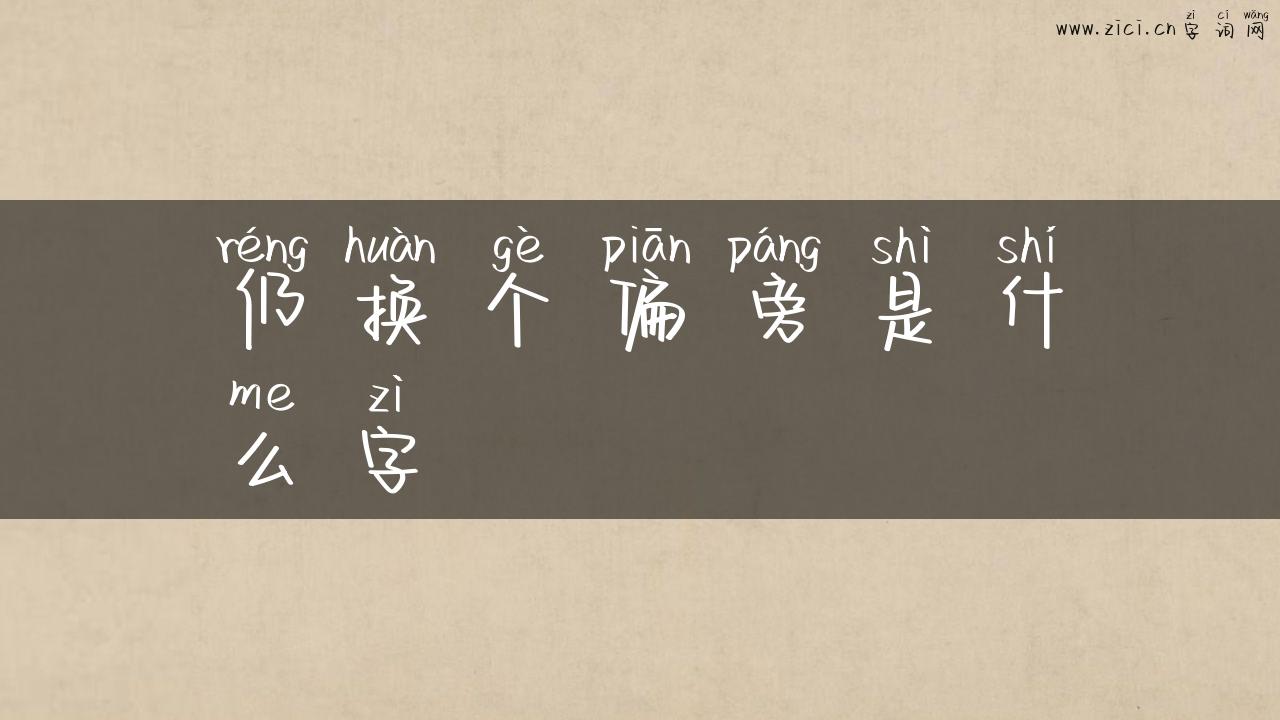 zì cí wǎng
www.zici.cn 字词网
réng huàn gè piān páng shì shí
仍换个偏旁是什
me zì
么字